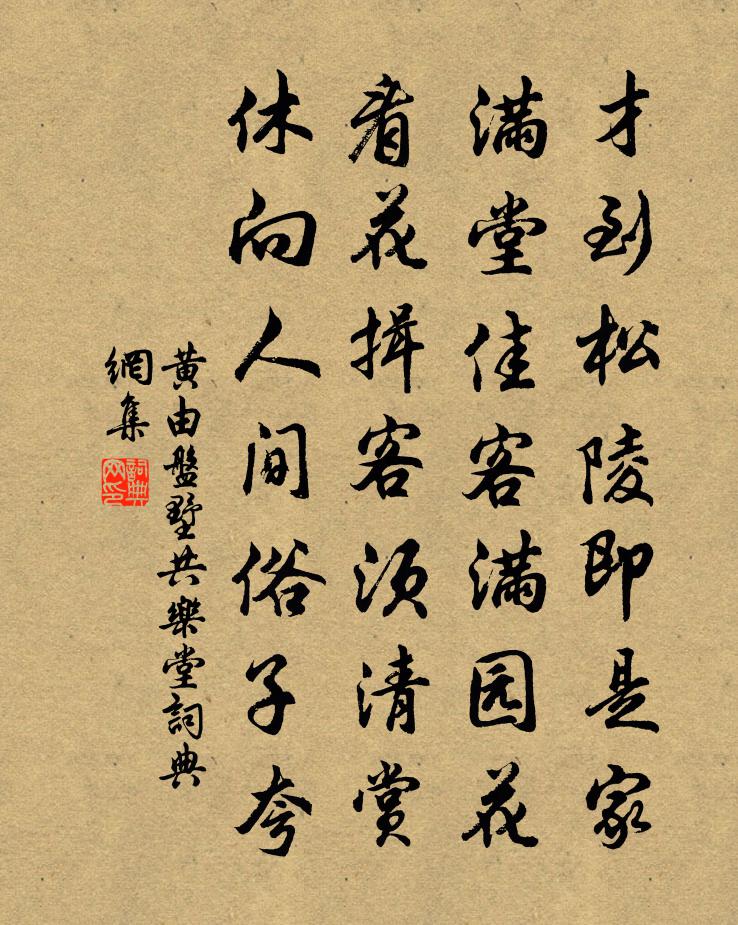 才到松陵即是家
满堂佳客满园花
看花揖客须清赏
休向人间俗子夸
黄由盤墅共樂堂詞典
網集
詞典
网印